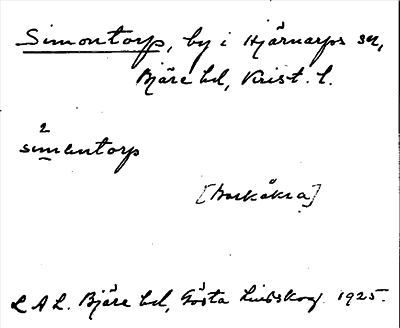 Simontorp, by i Hjärnarps sn,
Bjäre hd, Krist. l.
2
simentorp
[Barkåkra]
L A L. Bjäre hd, Gösta Lindskog 1925.